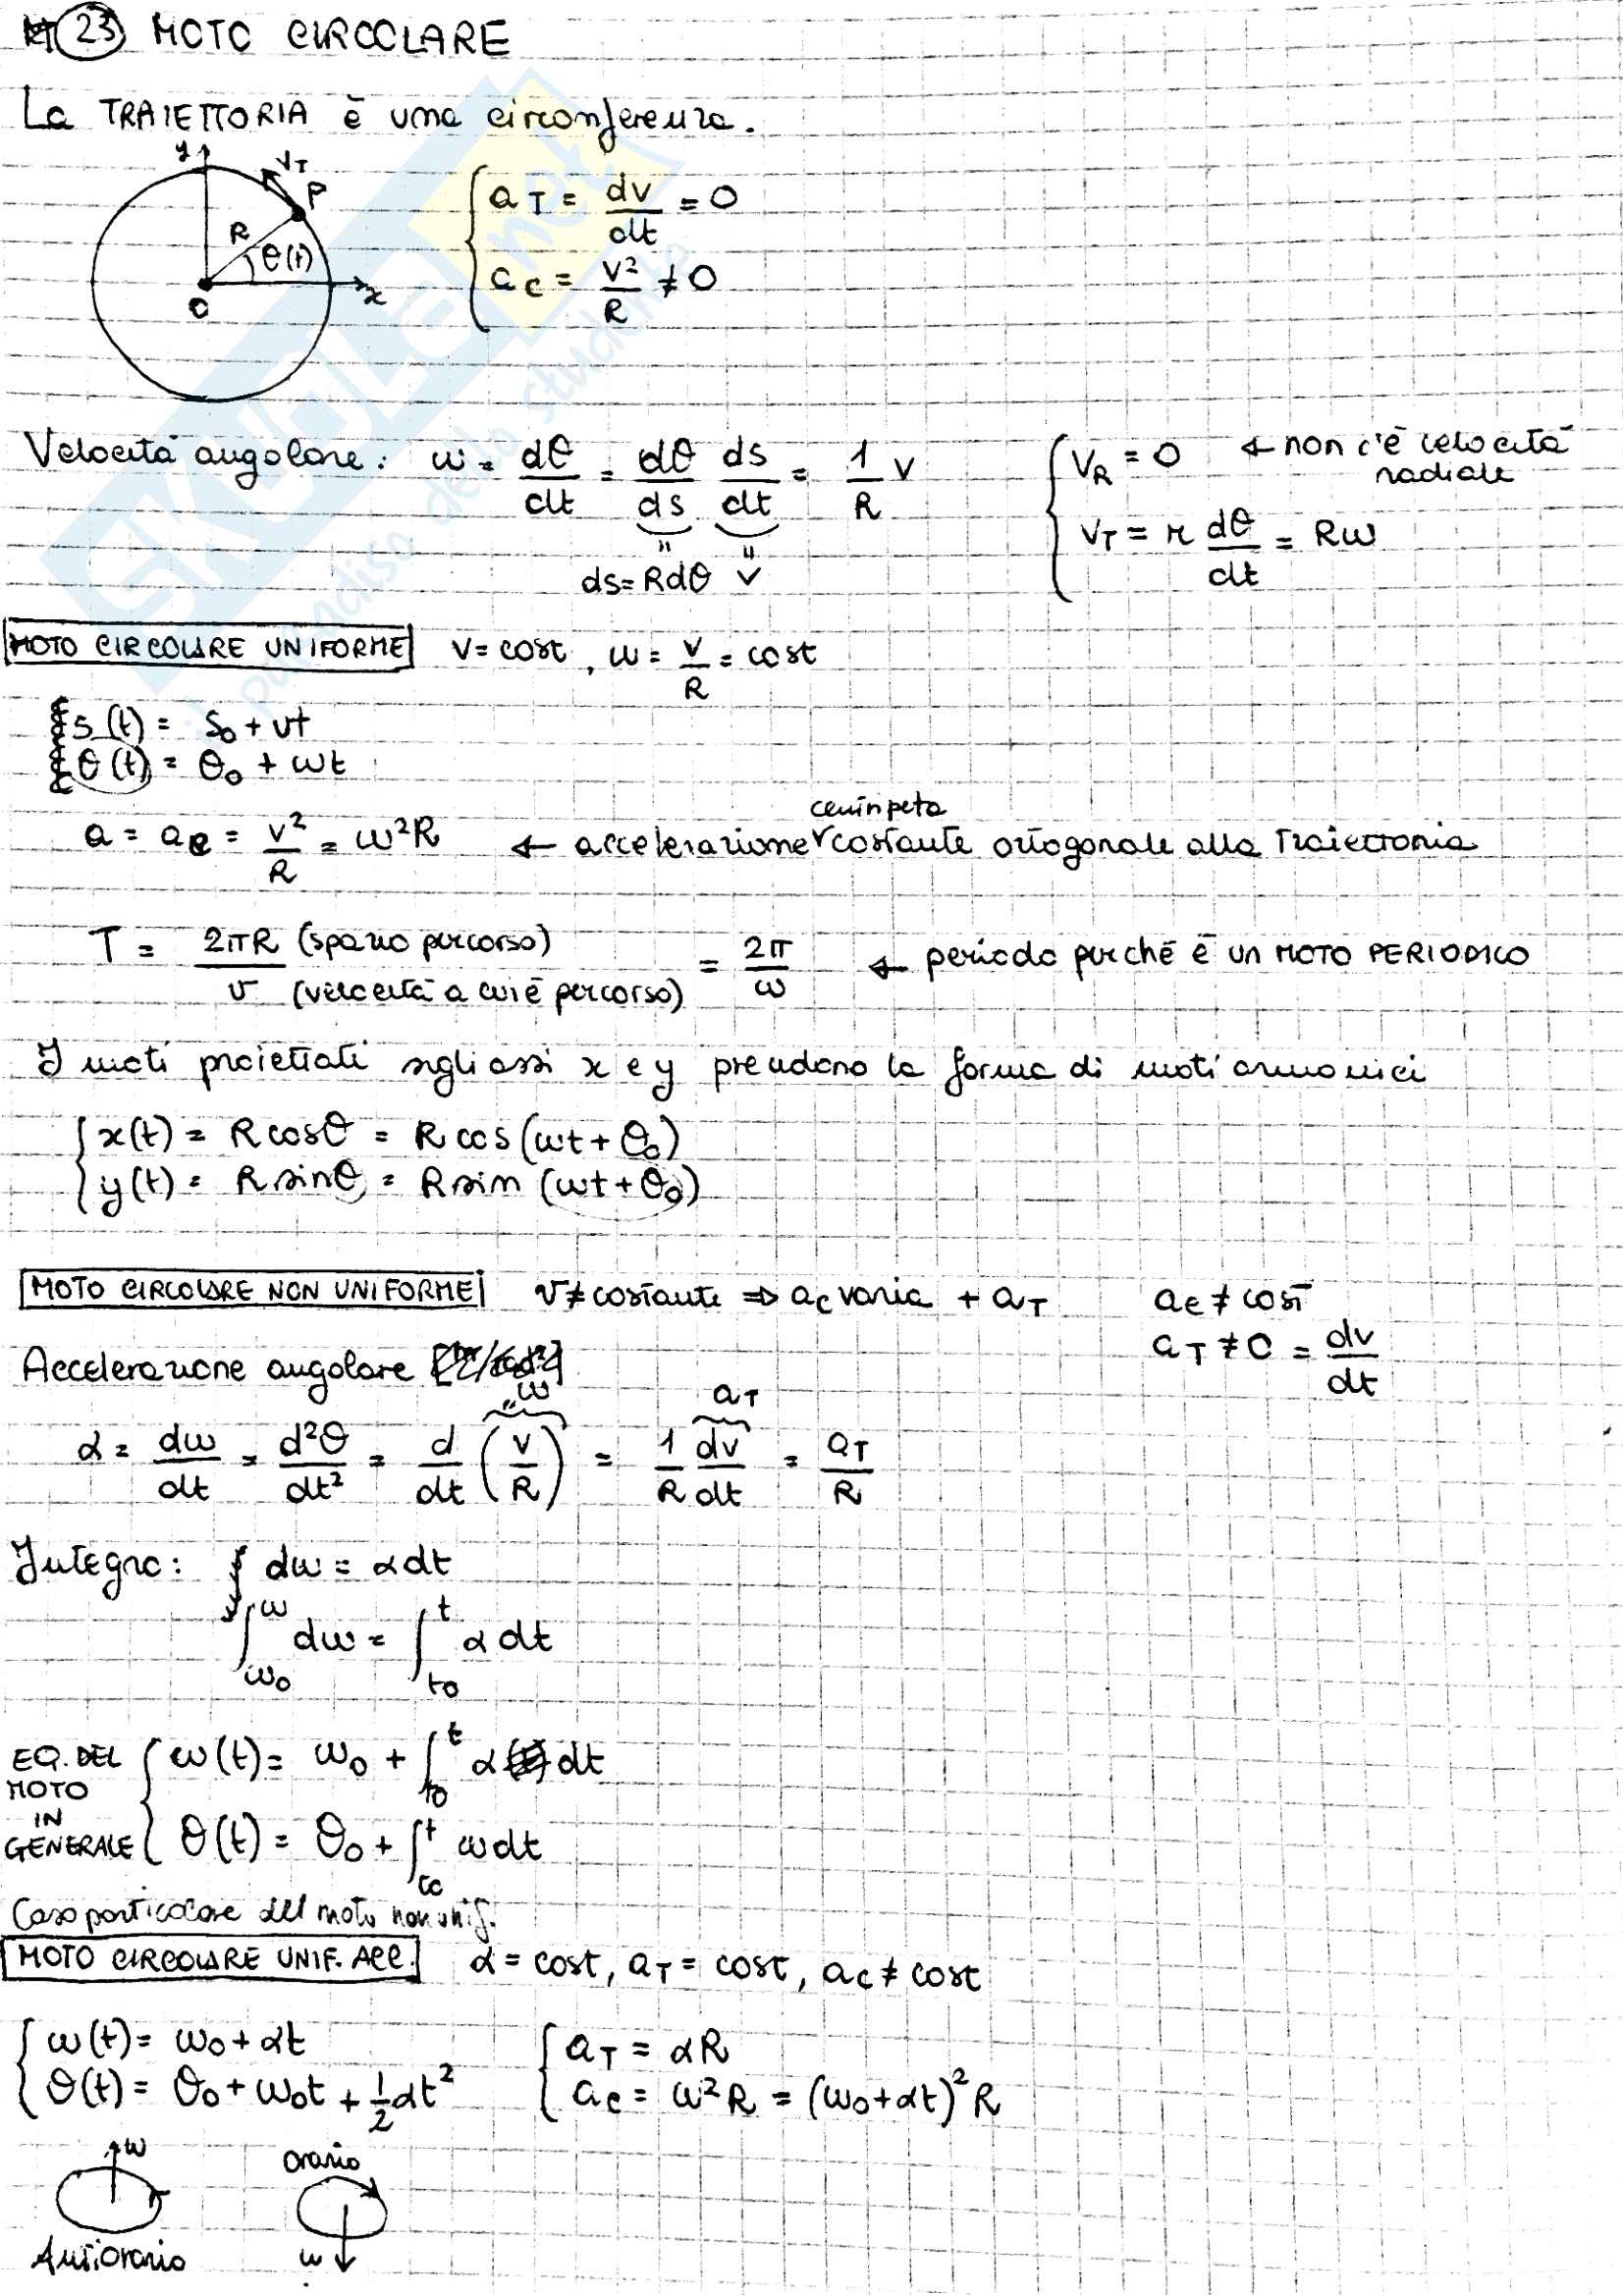 23 MOTO CIRCOLARE
La TRAIETTORIA è una circonferenza.
y v_T P
R θ(t)
O x
a_T = dv/dt = 0
a_C = v²/R ≠ 0
Velocità angolare: ω = dθ/dt = dθ/ds ds/dt = 1/R v
ds = Rdθ v
v_R = 0 ← non c'è velocità radiale
v_T = r dθ/dt = Rω
MOTO CIRCOLARE UNIFORME v = cost, ω = v/R = cost
s(t) = s₀ + vt
θ(t) = θ₀ + ωt
a = a_C = v²/R = ω²R ← accelerazione centripeta costante ortogonale alla Traiettoria
T = 2πR (spazio percorso) / v (velocità a cui è percorso) = 2π/ω ← periodo perché è un MOTO PERIODICO
I moti proiettati sugli assi x e y prendono la forma di moti armonici
x(t) = R cosθ = R cos(ωt + θ₀)
y(t) = R sinθ = R sin (ωt + θ₀)
MOTO CIRCOLARE NON UNIFORME v ≠ costante ⇒ a_C varia + a_T
a_C ≠ cost
a_T ≠ 0 = dv/dt
Accelerazione angolare
α = dω/dt = d²θ/dt² = d/dt (v/R) = 1/R dv/dt = a_T/R
ω a_T
Integro: dω = αdt
∫_ω₀^ω dω = ∫_t₀^t α dt
EQ. DEL MOTO IN GENERALE
ω(t) = ω₀ + ∫_t₀^t α dt
θ(t) = θ₀ + ∫_t₀^t ωdt
Caso particolare del moto non unif.
MOTO CIRCOLARE UNIF. ACC. α = cost, a_T = cost, a_C ≠ cost
ω(t) = ω₀ + αt
θ(t) = θ₀ + ω₀t + 1/2 αt²
a_T = αR
a_C = ω²R = (ω₀+αt)²R
ω
Antiorario
orario
ω
SKUOLA.net
paradiso dello studente